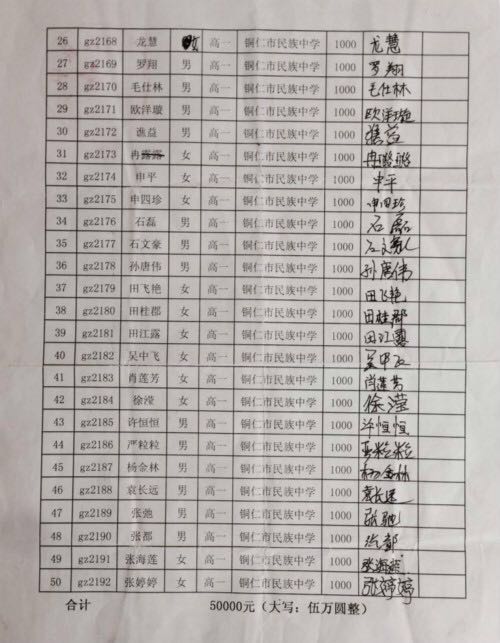 26 gz2168 龙慧 女 高一 铜仁市民族中学 1000 龙慧
27 gz2169 罗翔 男 高一 铜仁市民族中学 1000 罗翔
28 gz2170 毛仕林 男 高一 铜仁市民族中学 1000 毛仕林
29 gz2171 欧洋璇 男 高一 铜仁市民族中学 1000 欧洋璇
30 gz2172 谯益 男 高一 铜仁市民族中学 1000 谯益
31 gz2173 冉露露 女 高一 铜仁市民族中学 1000 冉璐璐
32 gz2174 申平 女 高一 铜仁市民族中学 1000 申平
33 gz2175 申四珍 女 高一 铜仁市民族中学 1000 申四珍
34 gz2176 石磊 男 高一 铜仁市民族中学 1000 石磊
35 gz2177 石文豪 男 高一 铜仁市民族中学 1000 石文豪
36 gz2178 孙唐伟 男 高一 铜仁市民族中学 1000 孙唐伟
37 gz2179 田飞艳 女 高一 铜仁市民族中学 1000 田飞艳
38 gz2180 田桂郡 女 高一 铜仁市民族中学 1000 田桂郡
39 gz2181 田江露 女 高一 铜仁市民族中学 1000 田江露
40 gz2182 吴中飞 女 高一 铜仁市民族中学 1000 吴中飞
41 gz2183 肖莲芳 女 高一 铜仁市民族中学 1000 肖莲芳
42 gz2184 徐滢 女 高一 铜仁市民族中学 1000 徐滢
43 gz2185 许恒恒 男 高一 铜仁市民族中学 1000 许恒恒
44 gz2186 严粒粒 男 高一 铜仁市民族中学 1000 严粒粒
45 gz2187 杨金林 男 高一 铜仁市民族中学 1000 杨金林
46 gz2188 袁长远 男 高一 铜仁市民族中学 1000 袁长远
47 gz2189 张弛 男 高一 铜仁市民族中学 1000 张弛
48 gz2190 张都 男 高一 铜仁市民族中学 1000 张都
49 gz2191 张海莲 女 高一 铜仁市民族中学 1000 张海莲
50 gz2192 张婷婷 女 高一 铜仁市民族中学 1000 张婷婷
合计 50000元（大写：伍万圆整）